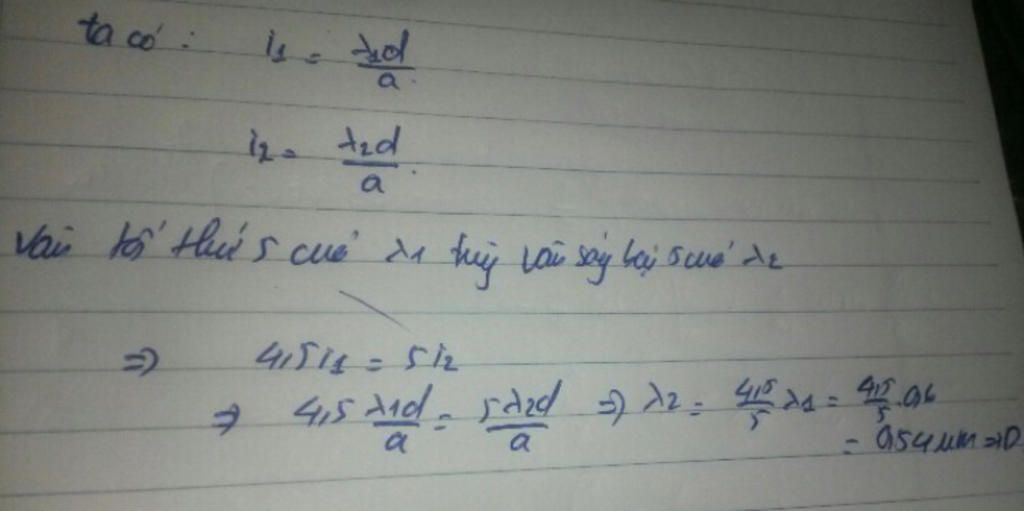 ta có : i1 = λ1d/a.
i2 = λ2d/a.
Vân tối thứ 5 của λ1 trùng vân sáng bậc 5 của λ2
=> 4,5i1 = 5i2
=> 4,5 λ1d/a = 5λ2d/a => λ2 = 4,5/5 λ1 = 4,5/5 . 0,6
= 0,54 μm => D